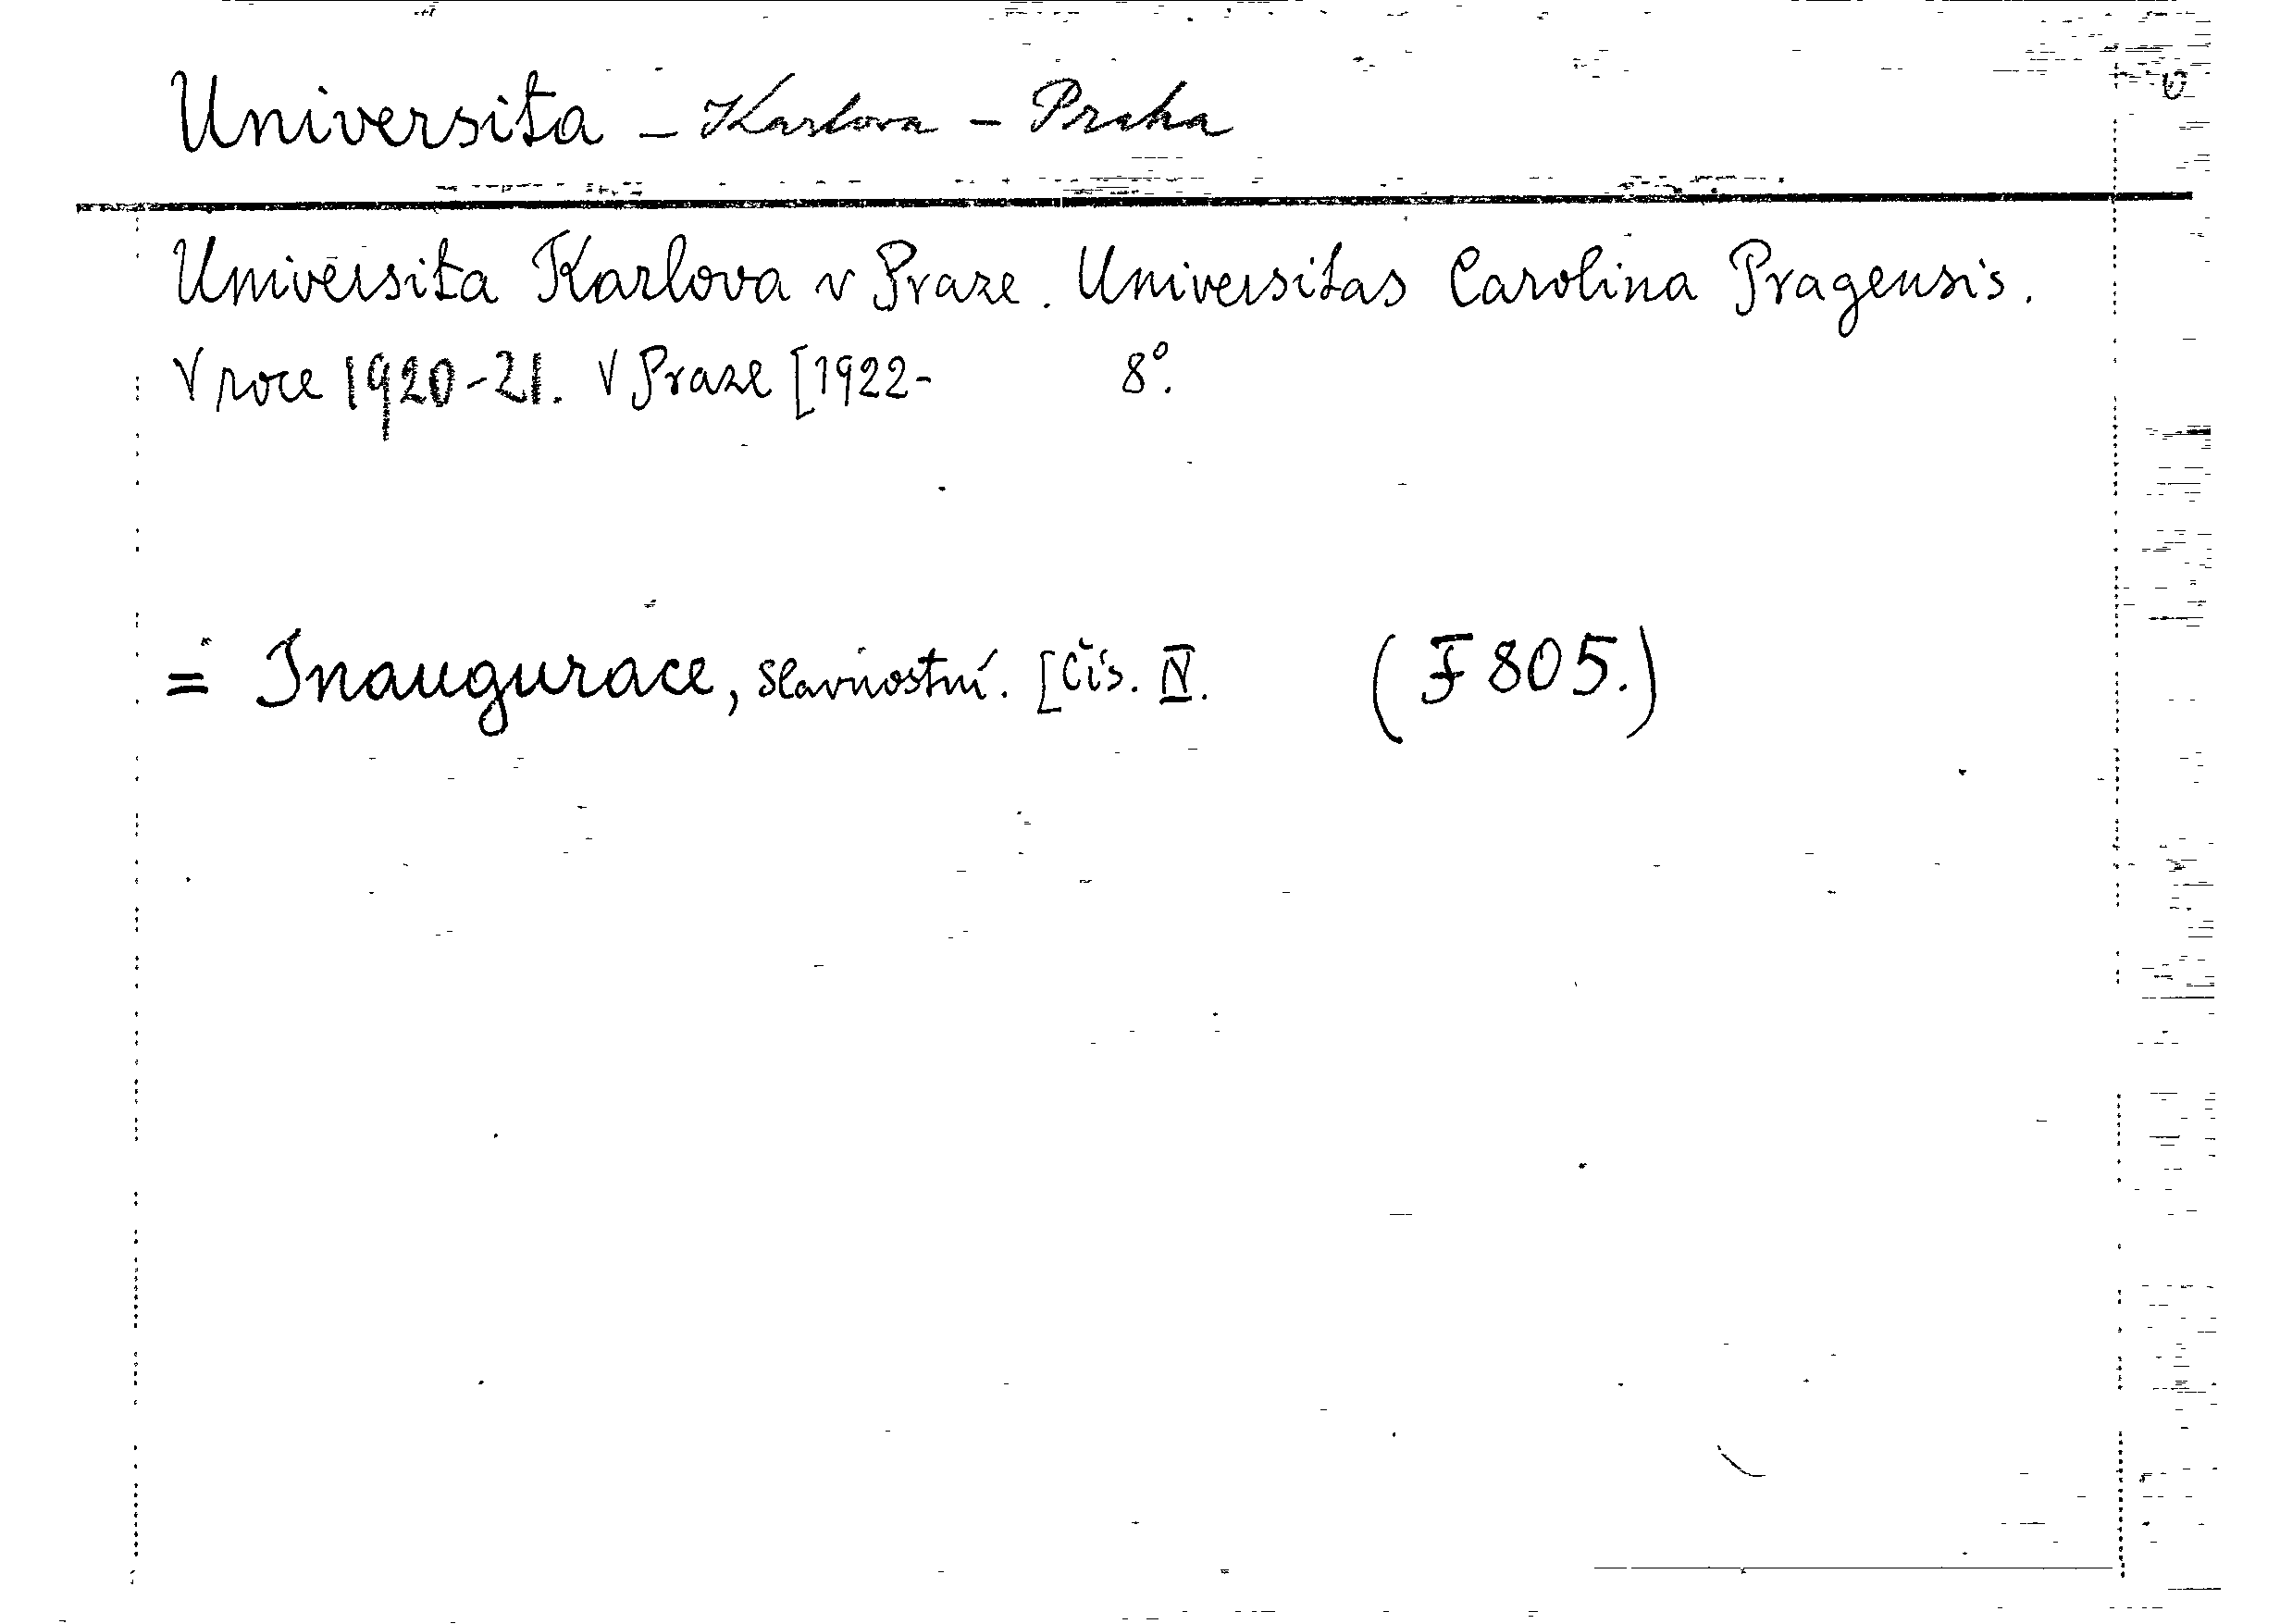 Universita - Karlova - Praha
Universita Karlova v Praze. Universitas Carolina Pragensis.
V roce 1920-21. V Praze [1922- 8°.
= Inaugurace, slavnostní. [Čís. IV. (F 805.)